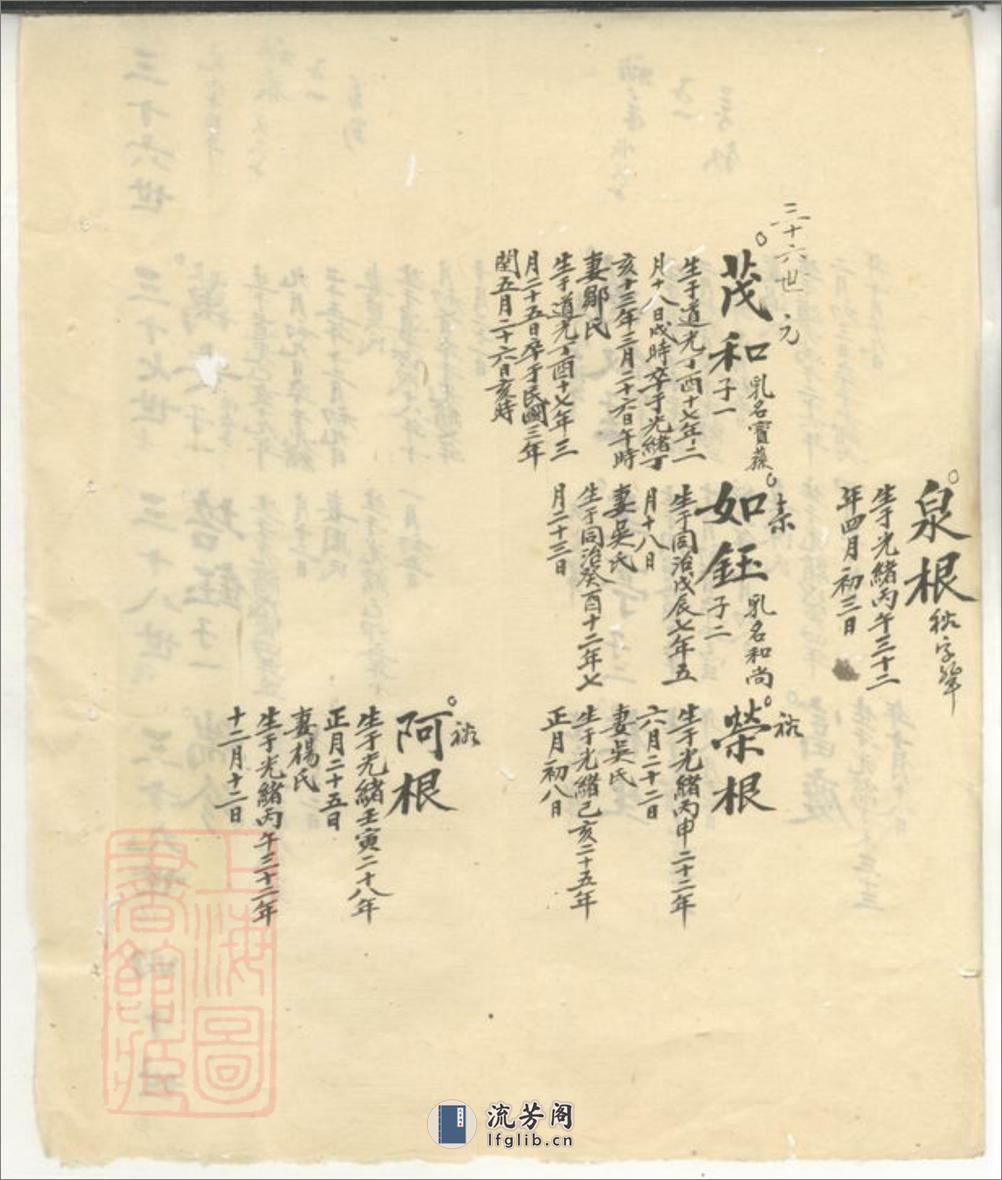 泉根
生于光緒丙午三十二
年四月初三日
三十六世 元
茂和子一 乳名寶
生于道光丁酉十七年二
月十八日戌時卒于光緒丁
亥十三年三月二十六日午時
妻鄔氏
生于道光丁酉十七年三
月二十五日卒于民國三年
閏五月二十六日亥時
如鈺子二 乳名和尚
生于同治戊辰七年五
月十八日
妻吳氏
生于同治癸酉十二年七
月二十三日
榮根
生于光緒丙申二十二年
六月二十二日
妻吳氏
生于光緒己亥二十五年
正月初八日
阿根
生于光緒壬寅二十八年
正月二十五日
妻楊氏
生于光緒丙午三十二年
十二月十二日
上海圖
書館藏
流芳阁
lfglib.cn